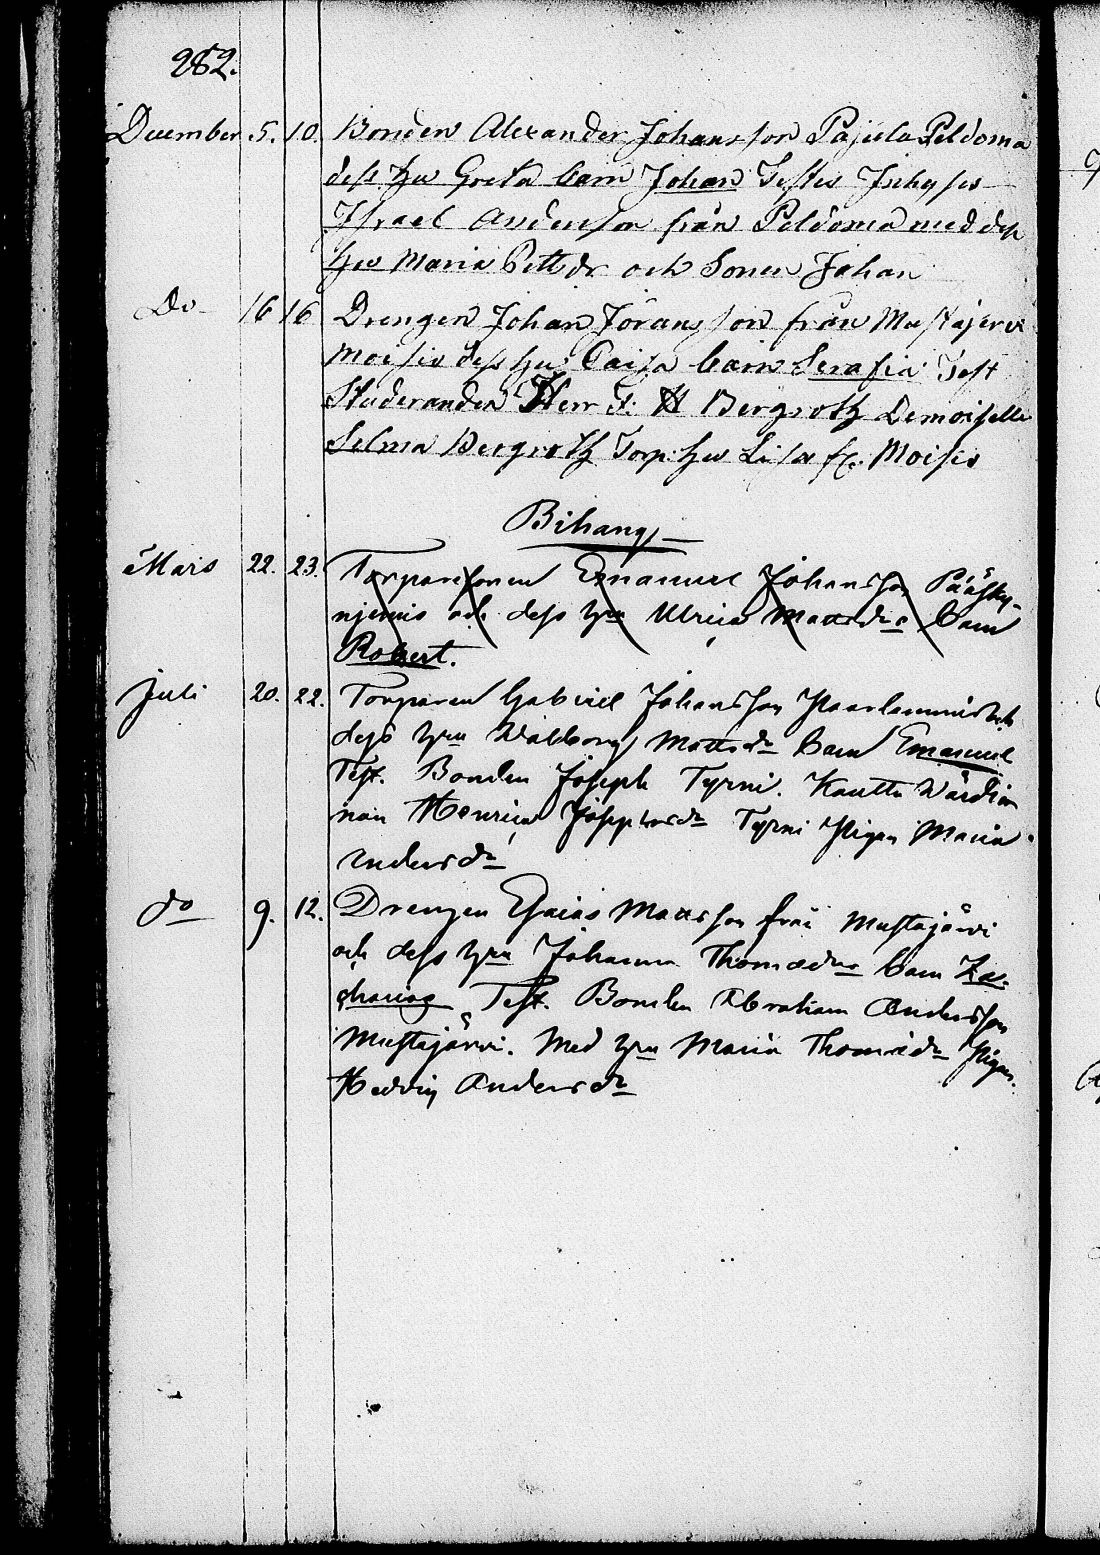 282.
December 5. 10. Bonden Alexander Johansson Pajula Peldoma
dess hu Greta barn Johan Testes Inhyses
Israel Andersson från Peldoma med dess
hu Maria Pettdr och Sonen Johan
Do 16 16 Drengen Johan Göransson från Mustajervi
Moisio dess hu Caisa barn Serafia Test
Studeranden Herr F. H Bergroth Demoiselle
Selma Bergroth Torp: hu Lisa fr. Moisio
Bihang
Mars 22. 23. Torparesonen Emanuel Johansson Pääsky-
njemis och dess hru Ulrica Mattsdr barn
Robert.
Juli 20. 22. Torparen Gabriel Johansson
dess hru Walborg Mattsdr barn Emanuel
Test. Bonden Joseph Tyrni. Kauttu
Henrica Tyrni Pigan Maria
Andersdr
do 9. 12. Drengen Esaias Mattsson från Mustajärvi
och dess hru Johanna Thomasdr barn Za-
charias Test. Bonden Abraham Andersson
Mustajärvi. Med hru Maria Thomasdr Pigan
Hedvig Andersdr